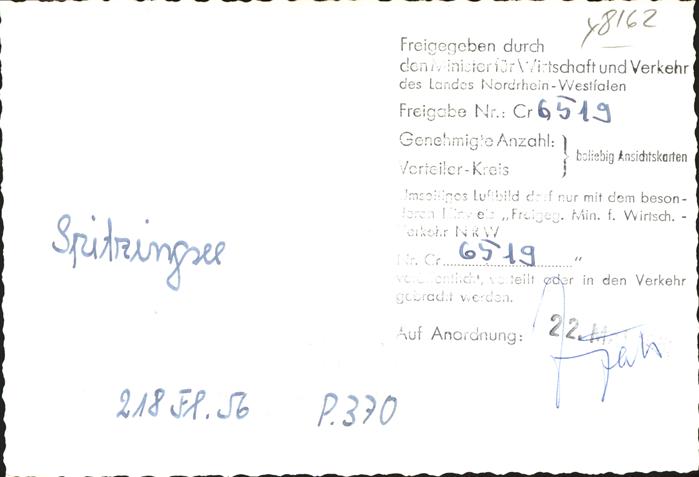 y8162
Freigegeben durch
den Minister für Wirtschaft und Verkehr
des Landes Nordrhein-Westfalen
Freigabe Nr.: Cr 6519
Genehmigte Anzahl:
beliebig Ansichtskarten
Verteiler-Kreis
Umseitiges Luftbild darf nur mit dem beson-
deren Hinweis „Freigeg. Min. f. Wirtsch.-
Verkehr NRW
Nr. Cr 6519 "
veröffentlicht, verteilt oder in den Verkehr
gebracht werden.
Auf Anordnung: 22.
Spitzingsee
218 Fl. 56 P. 370